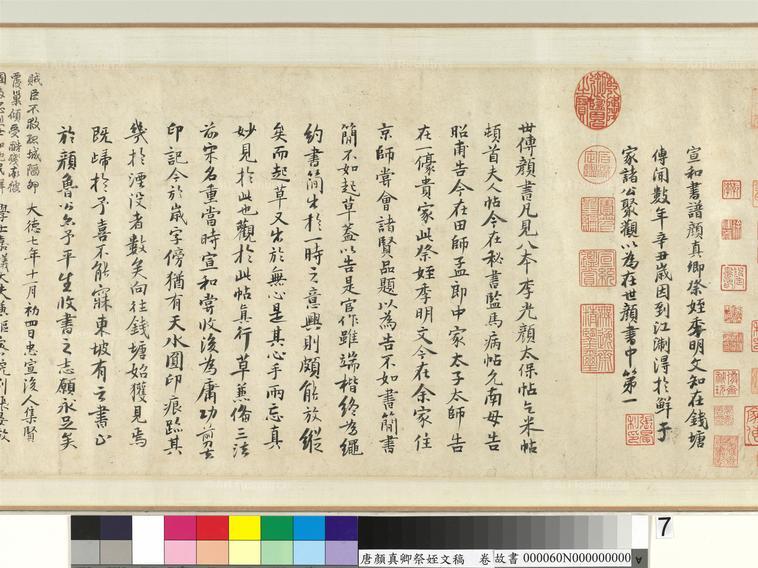 宣和書譜顏真卿祭姪季明文知在錢塘
傳聞數年辛丑歲因到江浙得於鮮于
家諸公聚觀以為在世顏書中第一
世傳顏書凡見八本李光顏太保帖乞米帖
頓首夫人帖今在秘書監馬病帖允南母告
昭甫告今在田師孟郎中家太子太師告
在一豪貴家此祭姪季明文今在余家住
京師嘗會諸賢品題以為告不如書簡書
簡不如起草蓋以告是官作雖端楷終為繩
約書簡出於一時之意興則頗能放縱
矣而起草又出於無心是其心手兩忘真
妙見於此也觀於此帖真行草兼備三法
前宋名重當時宣和嘗收後為庸功剪去
印記今於歲字傍猶有天水圓印痕跡其
幾於湮没者數矣向往錢塘始獲見焉
既歸於予喜不能寐東坡有云書止
於顏魯公矣予平生收書之志願永足矣
大德七年十一月初四日忠宣後人集賢
學士嘉議大夫
賊臣不救孤城
7
唐顏真卿祭姪文稿 卷 故書 000060N000000000